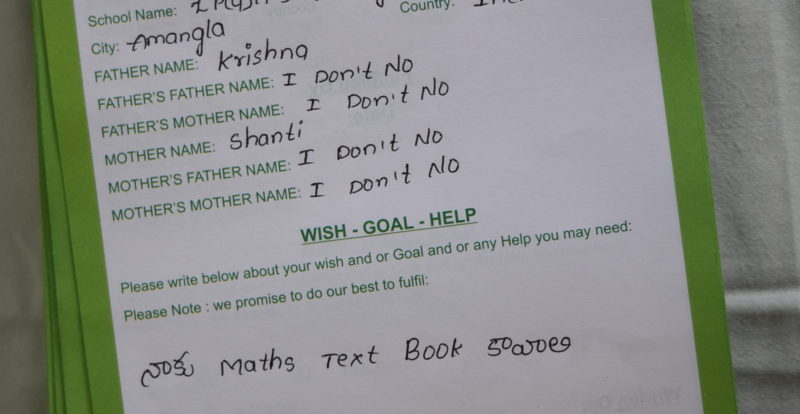 School Name:
Country:
City: Amangla
FATHER NAME: Krishna
FATHER'S FATHER NAME: I Don't No
FATHER'S MOTHER NAME: I Don't No
MOTHER NAME: Shanti
MOTHER'S FATHER NAME: I Don't No
MOTHER'S MOTHER NAME: I Don't No
WISH - GOAL - HELP
Please write below about your wish and or Goal and or any Help you may need:
Please Note : we promise to do our best to fulfil:
నాకు Maths Text Book కావాలి